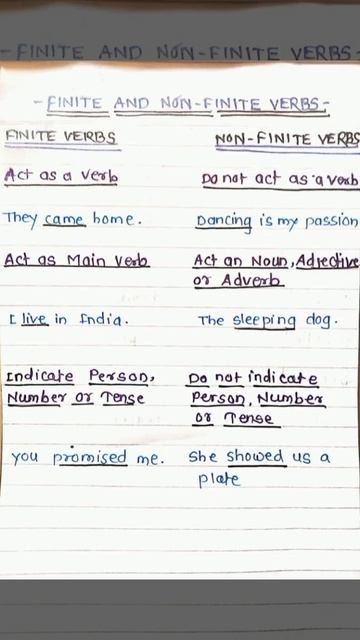 - FINITE AND NON-FINITE VERBS-
- FINITE AND NON-FINITE VERBS-
FINITE VERBS
NON-FINITE VERBS
Act as a verb
Do not act as a verb
They came home.
Dancing is my passion
Act as Main Verb
Act an Noun, Adjective
or Adverb
I live in India.
The sleeping dog.
Indicate Person,
Number or Tense
Do not indicate
Person, Number
or Tense
you promised me.
She showed us a
plate